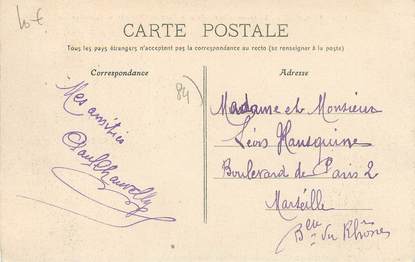 10 €
CARTE POSTALE
Tous les pays étrangers n'acceptent pas la correspondance au recto (se renseigner à la poste)
Correspondance
Adresse
84)
Mes amitiés
Madame et Monsieur
Léon
Boulevard de Paris 2
Marseille
Bches du Rhônes